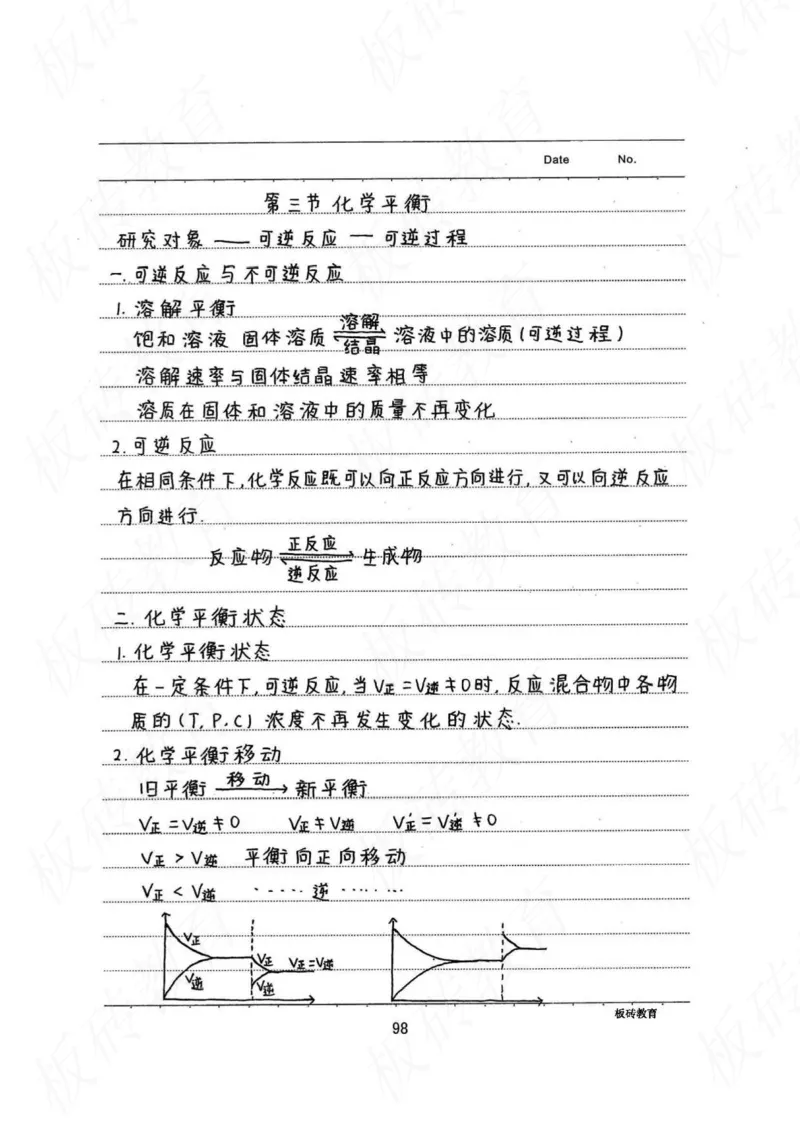 Date No.
第三节 化学平衡
研究对象 —— 可逆反应 — 可逆过程
一. 可逆反应与不可逆反应
1. 溶解平衡
溶解
饱和溶液 固体溶质 ⇌ 溶液中的溶质(可逆过程)
结晶
溶解速率与固体结晶速率相等
溶质在固体和溶液中的质量不再变化
2. 可逆反应
在相同条件下,化学反应既可以向正反应方向进行,又可以向逆反应
方向进行.
正反应
反应物 ⇌ 生成物
逆反应
二. 化学平衡状态
1. 化学平衡状态
在一定条件下,可逆反应,当V正=V逆≠0时,反应混合物中各物
质的(T, P.C)浓度不再发生变化的状态.
2. 化学平衡移动
移动
旧平衡 → 新平衡
V正=V逆≠0 V正≠V逆 V正'=V逆'≠0
V正 > V逆 平衡向正向移动
V正 < V逆 ····· 逆 ·······
V正
V正 V正=V逆
V逆 V逆
板砖教育
98